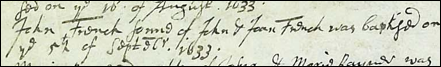 on yᵉ 16 of August. 1633.
John French sonne of John & Joan French was baptised on
yᵉ 5th of Septebr. 1633.
& was